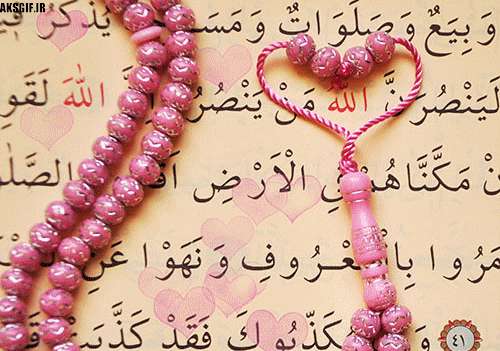 AKSGIF.IR
وَبِيَعٌ وَصَلَوَاتٌ وَمَسَـ يُذْكَرُ
لَيَنْصُرَنَّ اللّٰهُ مَنْ يَنْصُرُ اللّٰهَ لَقَوِ
نْ مَكَّنَّاهُمْ فِي الْاَرْضِ اَقَـ الصَّلٰو
مَرُوا بِالْمَعْرُوفِ وَنَهَوْا عَنِ
وَ يُكَذِّبُوكَ فَقَدْ كَذَّبَتْ
٤١
AKSGIF.IR